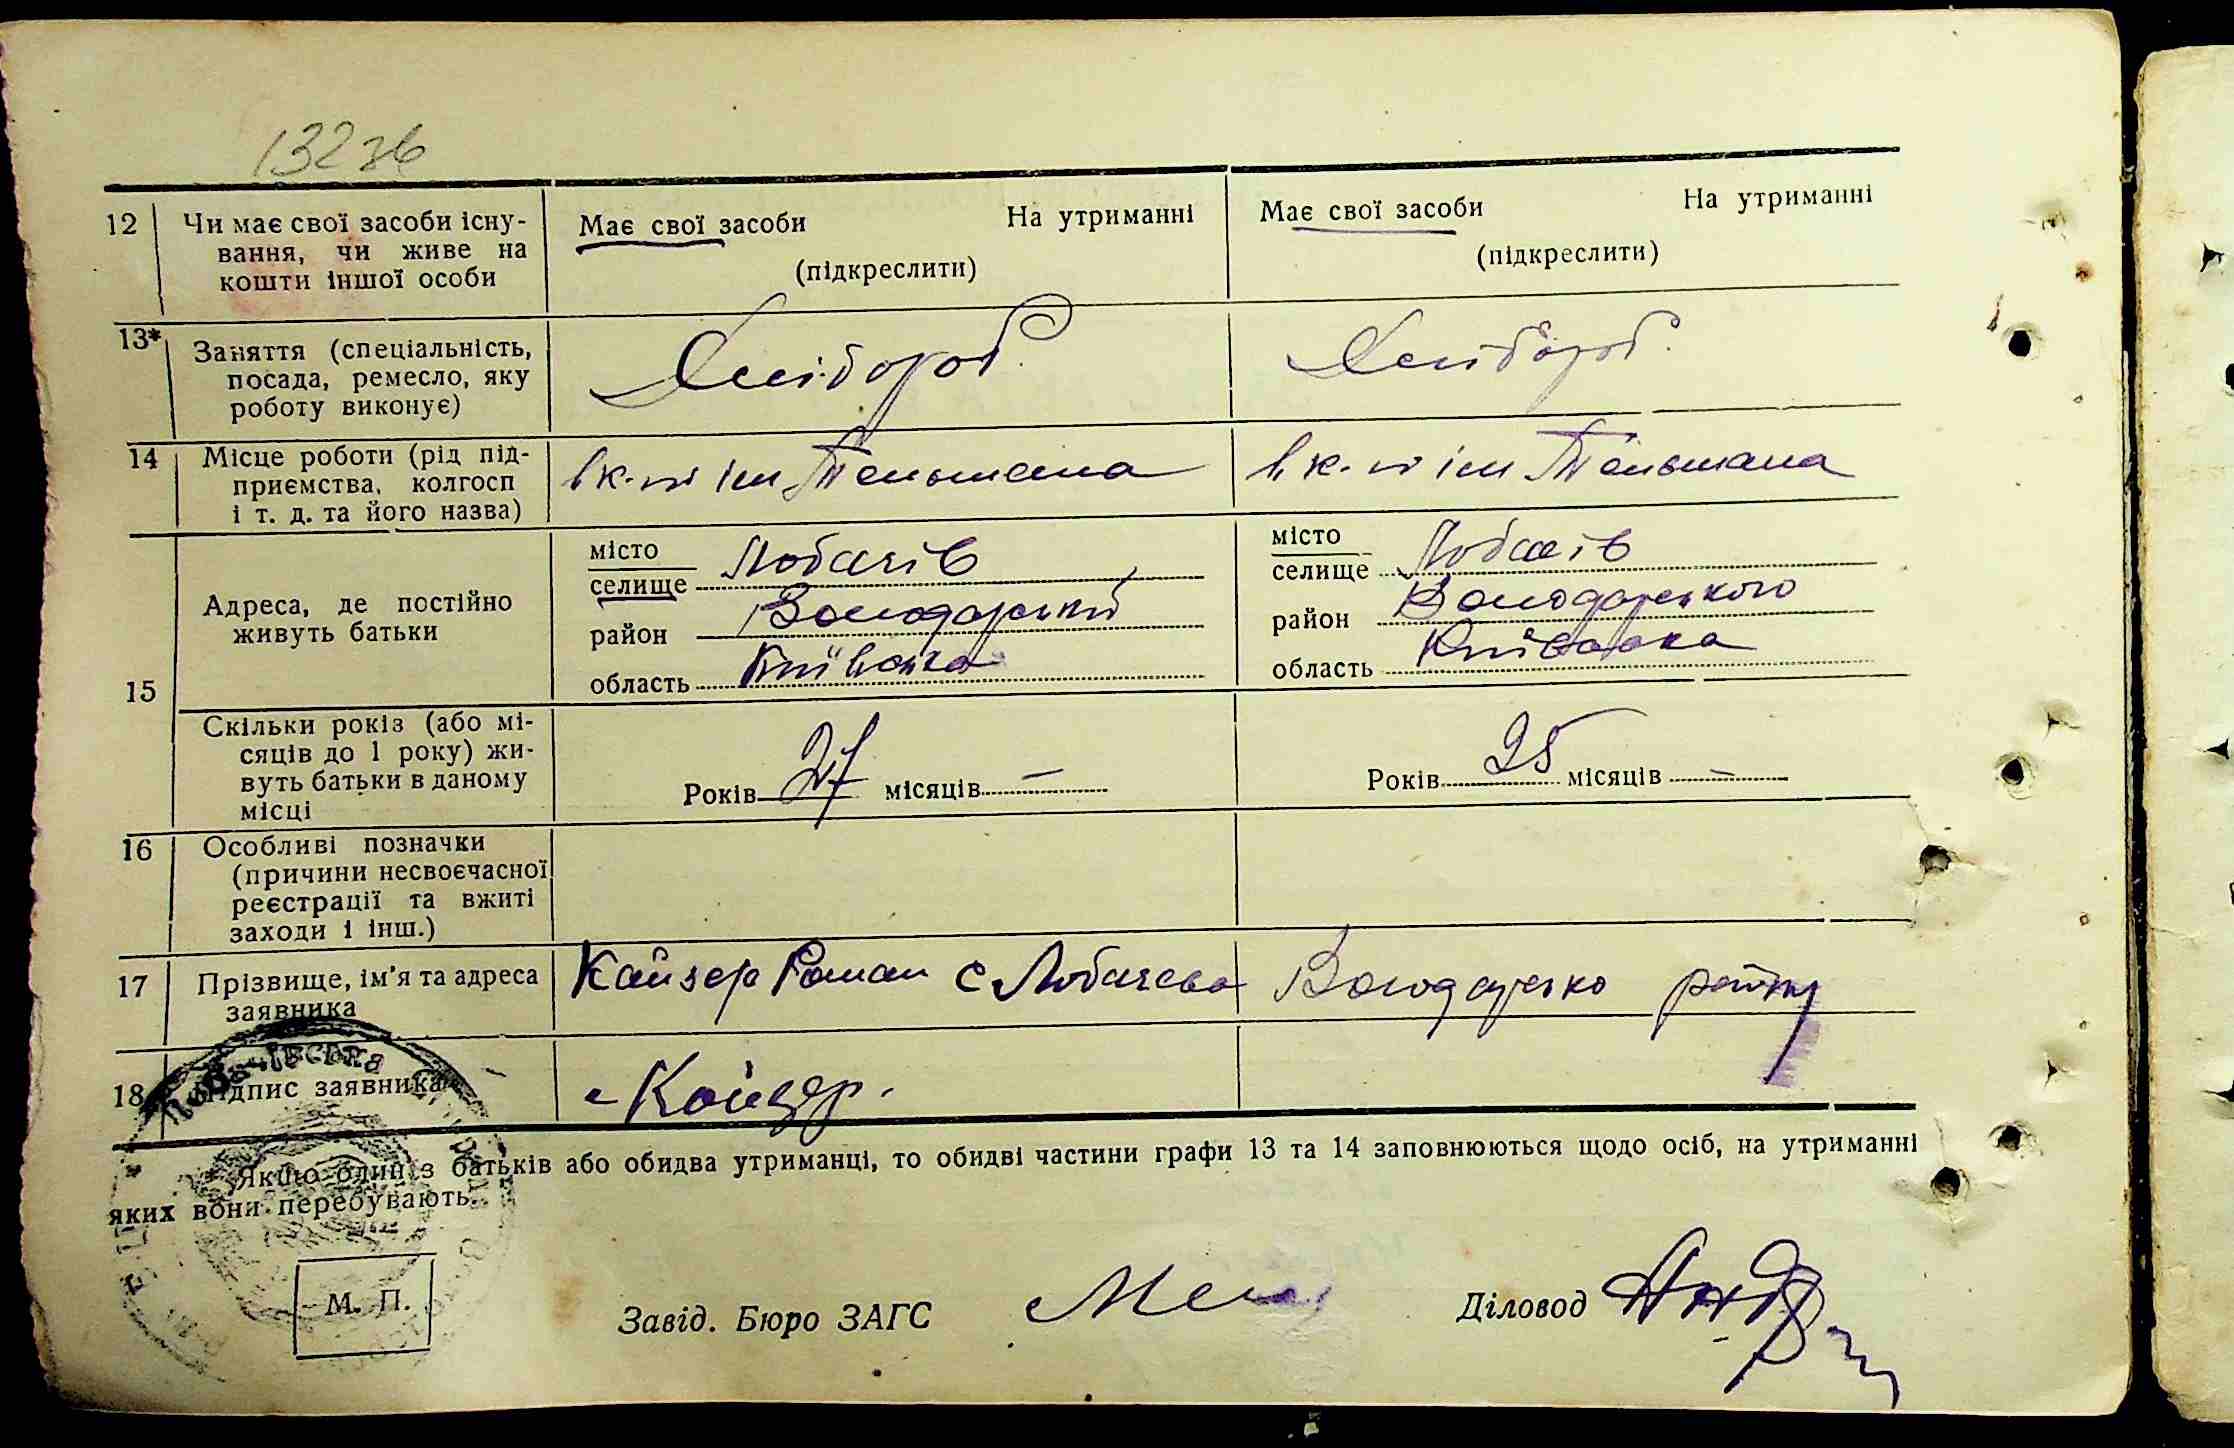 132 зв
12 Чи має свої засоби існу- Має свої засоби На утриманні Має свої засоби На утриманні
вання, чи живе на
кошти іншої особи (підкреслити) (підкреслити)
13* Заняття (спеціальність, Хлібороб. Хлібороб.
посада, ремесло, яку
роботу виконує)
14 Місце роботи (рід під- в к-пі ім Тельмана в к-пі ім Тельмана
приємства, колгосп
і т. д. та його назва)
15 Адреса, де постійно
живуть батьки
місто Лобачів місто Лобачів
селище селище
район Володарський район Володарського
область Київська область Київська
Скільки років (або мі-
сяців до 1 року) жи-
вуть батьки в даному
місці
Років 27 місяців — Років 25 місяців —
16 Особливі позначки
(причини несвоєчасної
реєстрації та вжиті
заходи і інш.)
17 Прізвище, ім'я та адреса Кайзер Роман с Лобачева Володарсько району
заявника
18 Підпис заявника Кайзер.
Лобачівська
* Якщо один з батьків або обидва утриманці, то обидві частини графи 13 та 14 заповнюються щодо осіб, на утриманні
яких вони перебувають.
М. П.
Завід. Бюро ЗАГС Діловод